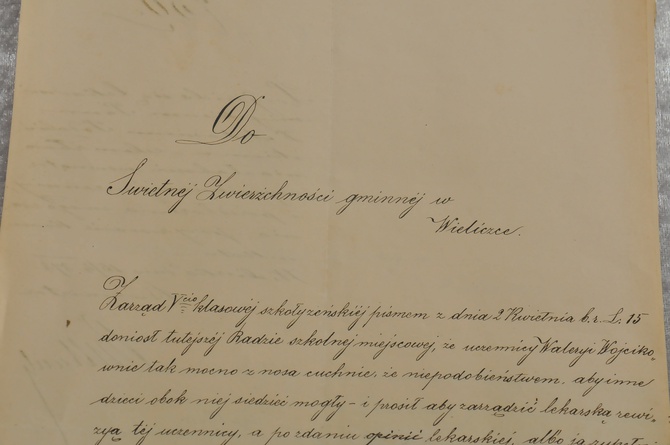 Do
Świetnéj Zwierżchności gminnéj w
Wieliczce.
Zarząd V cio klasowéj szkoły żeńskiéj pismem z dnia 2 Kwietnia b. r. L: 15
doniosł tutejszéj Radzie szkolnéj miejscowej, że uczennicy Waleryi Wójciko„
wnie tak mocno z nosa cuchnie, że niepodobieństwem, aby inne
dzieci obok niej siedzieć mogły – i prosił aby zarządzić lekarską rewi„
zyą téj uczennicy, a po zdaniu opinii lekarskiéj, albo ją